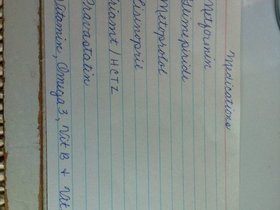 Medications
Metformin
Glimepiride
Metoprolol
Lisinopril
Triamt/HCTZ
Pravastatin
Vitamin, Omega 3, Vit B + Vit